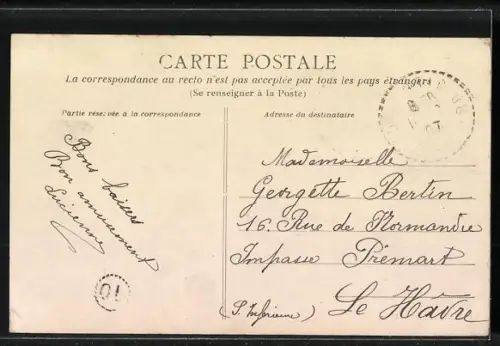 CARTE POSTALE
La correspondance au recto n'est pas acceptée par tous les pays étrangers
(Se renseigner à la Poste)
Partie réservée à la correspondance
Adresse du destinataire
Bons baisers
Bon amusement
Lucienne
Mademoiselle
Georgette Bertin
16 Rue de Normandie
Impasse Prémart
(S. Inférieure) Le Hâvre